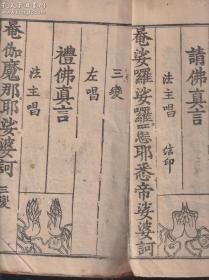 請佛真言
法主唱 結印
唵娑囉娑囉耶悉帝娑婆訶
三變
左唱
禮佛真言
法主唱
唵伽魔那耶娑婆訶 三變